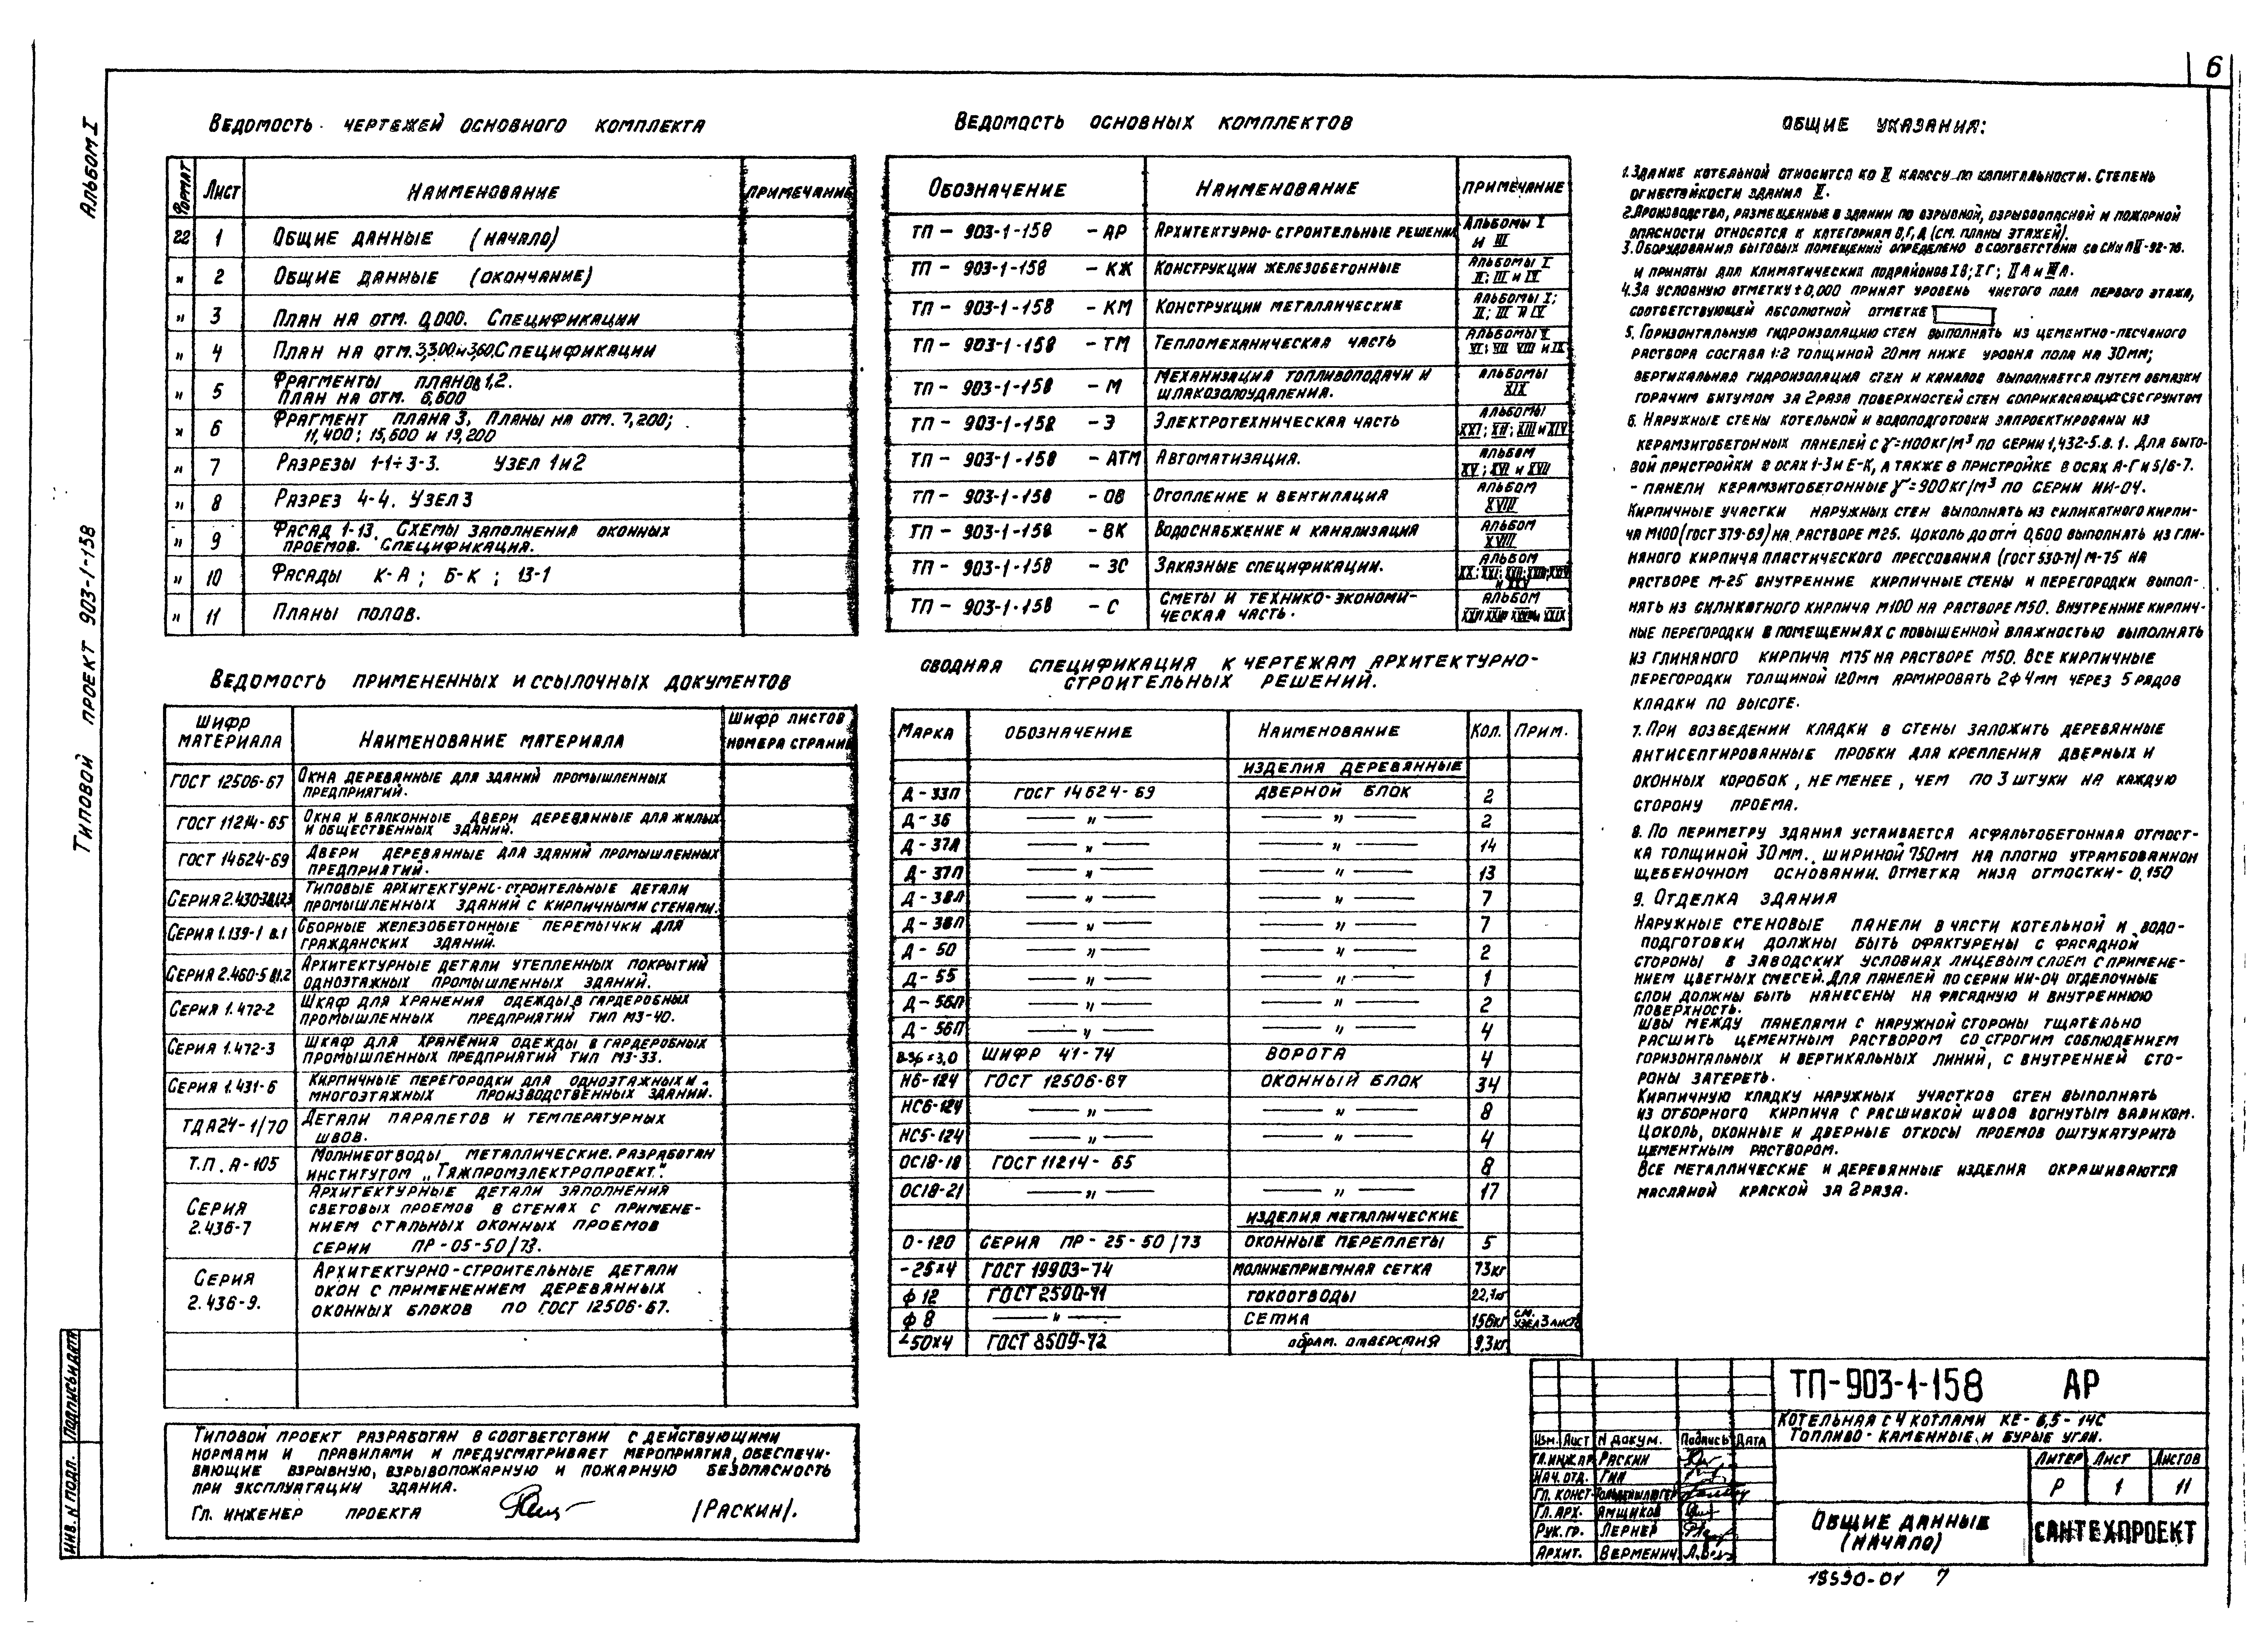 6
Альбом I
Типовой проект 903-1-158
Ведомость чертежей основного комплекта
Формат Лист Наименование Примечание
22 1 Общие данные (начало)
" 2 Общие данные (окончание)
" 3 План на отм. 0,000. Спецификации
" 4 План на отм. 3,300 и 3,60. Спецификации
" 5 Фрагменты планов 1,2.
План на отм. 6,600
" 6 Фрагмент плана 3, Планы на отм. 7,200;
11,400; 15,600 и 19,200
" 7 Разрезы 1-1÷3-3. Узел 1 и 2
" 8 Разрез 4-4. Узел 3
" 9 Фасад 1-13. Схемы заполнения оконных
проемов. Спецификация.
" 10 Фасады К-А; Б-К; 13-1
" 11 Планы полов.
Ведомость примененных и ссылочных документов
Шифр материала Наименование материала Шифр листов номера страниц
ГОСТ 12506-67 Окна деревянные для зданий промышленных
предприятий.
ГОСТ 11214-65 Окна и балконные двери деревянные для жилых
и общественных зданий.
ГОСТ 14624-69 Двери деревянные для зданий промышленных
предприятий.
Серия 2.430- Типовые архитектурно-строительные детали
промышленных зданий с кирпичными стенами.
Серия 1.139-1 в.1 Сборные железобетонные перемычки для
гражданских зданий.
Серия 2.460-5 в1.2 Архитектурные детали утепленных покрытий
одноэтажных промышленных зданий.
Серия 1.472-2 Шкаф для хранения одежды в гардеробных
промышленных предприятий тип МЗ-40.
Серия 1.472-3 Шкаф для хранения одежды в гардеробных
промышленных предприятий тип МЗ-33.
Серия 1.431-6 Кирпичные перегородки для одноэтажных и
многоэтажных производственных зданий.
ТДА24-1/70 Детали парапетов и температурных
швов.
Т.П.А-105 Молниеотводы металлические. Разработан
институтом „Тяжпромэлектропроект".
Серия 2.436-7 Архитектурные детали заполнения
световых проемов в стенах с примене-
нием стальных оконных проемов
серии ПР-05-50/73.
Серия 2.436-9. Архитектурно-строительные детали
окон с применением деревянных
оконных блоков по ГОСТ 12506-67.
Типовой проект разработан в соответствии с действующими
нормами и правилами и предусматривает мероприятия, обеспечи-
вающие взрывную, взрывопожарную и пожарную безопасность
при эксплуатации здания.
Гл. инженер проекта (Раскин).
Ведомость основных комплектов
Обозначение Наименование Примечание
ТП-903-1-158 -АР Архитектурно-строительные решения Альбомы I
и III
ТП-903-1-158 -КЖ Конструкции железобетонные Альбомы I
II; III и IV
ТП-903-1-158 -КМ Конструкции металлические Альбомы I;
II; III и IV
ТП-903-1-158 -ТМ Тепломеханическая часть Альбомы V
VI; VII VIII и IX
ТП-903-1-158 -М Механизация топливоподачи и
шлакозолоудаления. Альбомы
XIX
ТП-903-1-158 -Э Электротехническая часть Альбомы
XII; XIII и XIV
ТП-903-1-158 -АТМ Автоматизация. Альбом
XV; XVI и XVII
ТП-903-1-158 -ОВ Отопление и вентиляция Альбом
XVIII
ТП-903-1-158 -ВК Водоснабжение и канализация Альбом
XVIII
ТП-903-1-158 -ЗС Заказные спецификации. Альбом
и XXV
ТП-903-1-158 -С Сметы и технико-экономи-
ческая часть. Альбом
Сводная спецификация к чертежам архитектурно-
строительных решений.
Марка Обозначение Наименование Кол. Прим.
Изделия деревянные
Д-33П ГОСТ 14624-69 Дверной блок 2
Д-36 —"— —"— 2
Д-37Л —"— —"— 14
Д-37П —"— —"— 13
Д-38Л —"— —"— 7
Д-38П —"— —"— 7
Д-50 —"— —"— 2
Д-55 —"— —"— 1
Д-56Л —"— —"— 2
Д-56П —"— —"— 4
В-3,6×3,0 Шифр 41-74 Ворота 4
Н6-124 ГОСТ 12506-67 Оконный блок 34
НС6-124 —"— —"— 8
НС5-124 —"— —"— 4
ОС18-18 ГОСТ 11214-65 8
ОС18-21 —"— —"— 17
Изделия металлические
О-120 Серия ПР-25-50/73 Оконные переплеты 5
-25×4 ГОСТ 19903-74 Молниеприемная сетка 73кг
ф12 ГОСТ 2590-71 Токоотводы 22,7кг
ф8 —"— Сетка 156кг см. узел 3 лист 8
∟50×4 ГОСТ 8509-72 обрам. отверстия 9,3кг
Общие указания:
1. Здание котельной относится ко II классу по капитальности. Степень
огнестойкости здания II.
2. Производства, размещенные в здании по взрывной, взрывоопасной и пожарной
опасности относятся к категориям В,Г,Д (см. планы этажей).
3. Оборудования бытовых помещений определено в соответствия со СНиП II-92-76.
и приняты для климатических подрайонов I В; I Г; II А и III А.
4. За условную отметку ±0,000 принят уровень чистого пола первого этажа,
соответствующей абсолютной отметке
5. Горизонтальную гидроизоляцию стен выполнять из цементно-песчаного
раствора состава 1:2 толщиной 20мм ниже уровня пола на 30мм;
вертикальная гидроизоляция стен и каналов выполняется путем обмазки
горячим битумом за 2 раза поверхностей стен соприкасающихся с грунтом
6. Наружные стены котельной и водоподготовки запроектированы из
керамзитобетонных панелей с γ=1100кг/м³ по серии 1,432-5.В.1. Для быто-
вой пристройки в осях 1-3 и Е-К, а также в пристройке в осях А-Г и 5/6-7.
- панели керамзитобетонные γ=900кг/м³ по серии ИИ-04.
Кирпичные участки наружных стен выполнять из силикатного кирпи-
ча М100 (ГОСТ 379-69) на растворе М25. Цоколь до отм 0,600 выполнять из гли-
няного кирпича пластического прессования (ГОСТ 530-71) М-75 на
растворе М-25 внутренние кирпичные стены и перегородки выпол-
нять из силикатного кирпича М100 на растворе М50. Внутренние кирпич-
ные перегородки в помещениях с повышенной влажностью выполнять
из глиняного кирпича М75 на растворе М50. Все кирпичные
перегородки толщиной 120мм армировать 2ф4мм через 5 рядов
кладки по высоте.
7. При возведении кладки в стены заложить деревянные
антисептированные пробки для крепления дверных и
оконных коробок, не менее, чем по 3 штуки на каждую
сторону проема.
8. По периметру здания устаивается асфальтобетонная отмост-
ка толщиной 30мм., шириной 750мм на плотно утрамбованном
щебеночном основании. Отметка низа отмостки- 0,150
9. Отделка здания
Наружные стеновые панели в части котельной и водо-
подготовки должны быть офактурены с фасадной
стороны в заводских условиях лицевым слоем с примене-
нием цветных смесей. Для панелей по серии ИИ-04 отделочные
слои должны быть нанесены на фасадную и внутреннюю
поверхность.
Швы между панелями с наружной стороны тщательно
расшить цементным раствором со строгим соблюдением
горизонтальных и вертикальных линий, с внутренней сто-
роны затереть.
Кирпичную кладку наружных участков стен выполнять
из отборного кирпича с расшивкой швов вогнутым валиком.
Цоколь, оконные и дверные откосы проемов оштукатурить
цементным раствором.
Все металлические и деревянные изделия окрашиваются
масляной краской за 2 раза.
ТП-903-1-158 АР
Котельная с 4 котлами КЕ-6,5-14С
Топливо-каменные и бурые угли.
Изм. Лист N докум. Подпись Дата
Гл.инж.пр Раскин
Нач.отд.
Гл. конст.
Гл.арх. Ямщиков
Рук.гр. Лернер
Архит. Верменич
Литер Лист Листов
Р 1 11
Общие данные
(начало)
САНТЕХПРОЕКТ
Инв. N подл. Подпись и дата
7